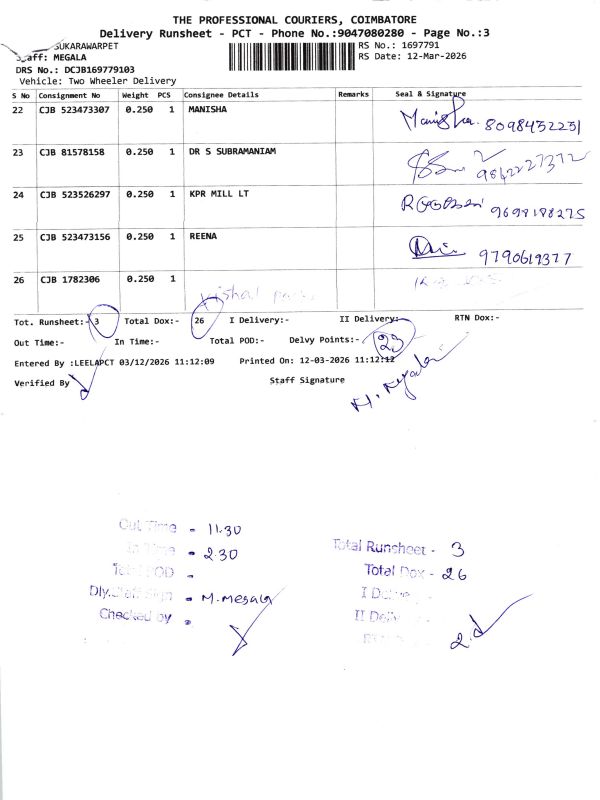 THE PROFESSIONAL COURIERS, COIMBATORE
Delivery Runsheet - PCT - Phone No.:9047080280 - Page No.:3
SUKARAWARPET
Staff: MEGALA
RS No.: 1697791
DRS No.: DCJB169779103
RS Date: 12-Mar-2026
Vehicle: Two Wheeler Delivery
S No Consignment No Weight PCS Consignee Details Remarks Seal & Signature
22 CJB 523473307 0.250 1 MANISHA Manisha 8098452251
23 CJB 81578158 0.250 1 DR S SUBRAMANIAM
24 CJB 523526297 0.250 1 KPR MILL LT 9698188275
25 CJB 523473156 0.250 1 REENA 9790619377
26 CJB 1782306 0.250 1
Tot. Runsheet:- 3 Total Dox:- 26 I Delivery:- II Delivery:- RTN Dox:-
Out Time:- In Time:- Total POD:- Delvy Points:- 23
Entered By :LEELAPCT 03/12/2026 11:12:09 Printed On: 12-03-2026 11:12:12
Verified By Staff Signature
M. Megala
Out Time - 11.30
In Time - 2.30
Total POD -
Dly.Staff Sign - M.Megala
Checked by -
Total Runsheet - 3
Total Dox - 26
I Delive
II Deliv